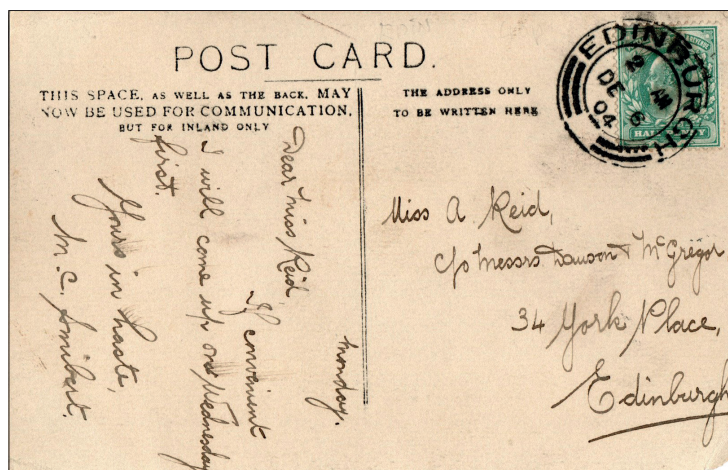 POST CARD.
THIS SPACE, AS WELL AS THE BACK, MAY
NOW BE USED FOR COMMUNICATION,
BUT FOR INLAND ONLY
THE ADDRESS ONLY
TO BE WRITTEN HERE
EDINBURGH
AM
DE 6
04
Monday.
Dear Miss Reid
If convenient
I will come up on Wednesday
first.
Yours in haste,
M. C. Smibert.
Miss A. Reid,
c/o Messrs Dawson & McGregor
34 York Place,
Edinburgh